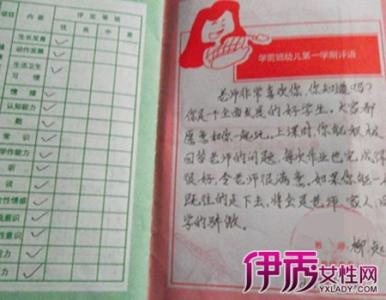 项目
内容
评定等级
生长发育
动作发展
生活卫生
习惯
情绪
认知能力
数
常识
听
说
学前班幼儿第一学期评语
老师非常喜欢你,你知道吗?
你是个全面发展的好学生。大家都
愿意和你一起玩,上课时,你能积极
回答老师的问题,每次作业也完成得
很好,令老师很满意。如果你能一
既往的走下去,将会是老师、家人、同
学的骄傲。
伊秀女性网
YXLADY.COM